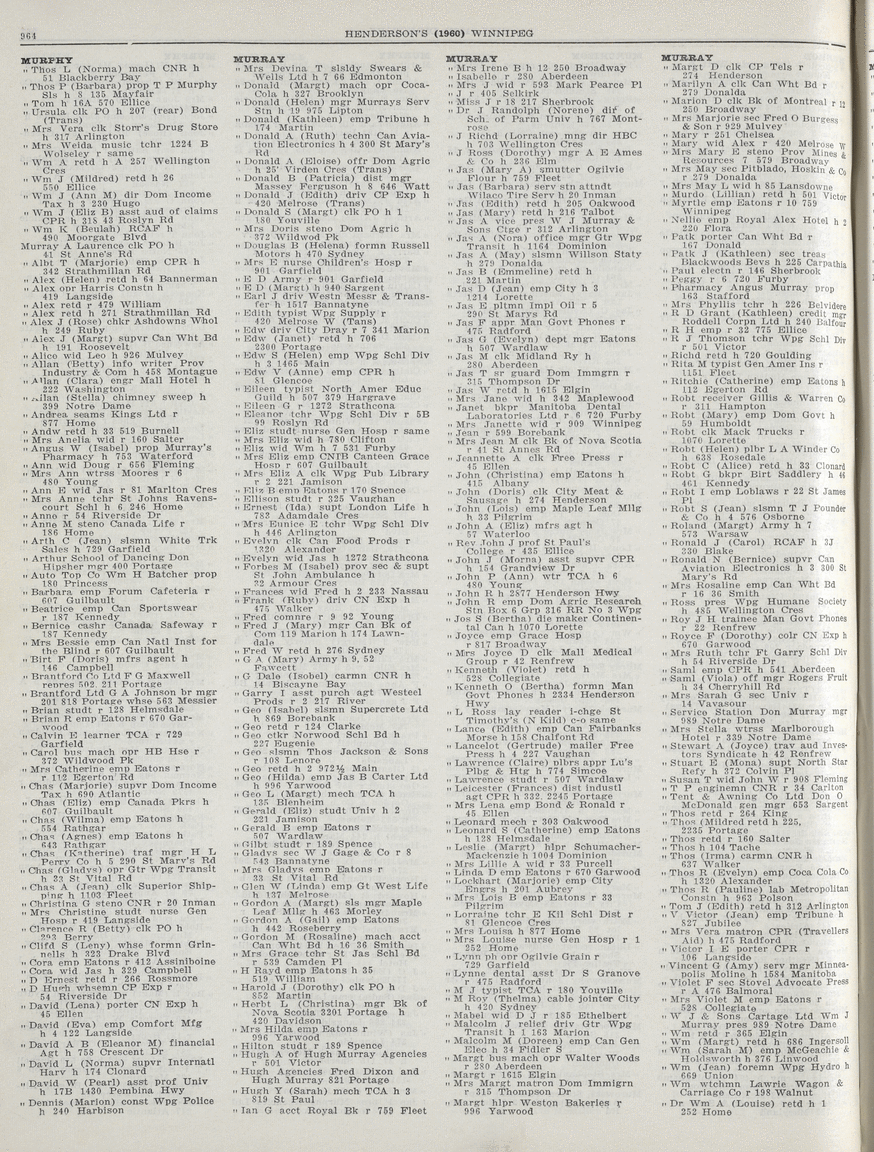 964
HENDERSON'S (1960) WINNIPEG
MURPHY
" Thos L (Norma) mach CNR h
51 Blackberry Bay
" Thos P (Barbara) prop T P Murphy
Sls h 8 135 Mayfair
" Tom h 16A 570 Ellice
" Ursula clk PO h 207 (rear) Bond
(Trans)
" Mrs Vera clk Storr's Drug Store
h 317 Arlington
" Mrs Weida music tchr 1224 B
Wolseley r same
" Wm A retd h A 257 Wellington
Cres
" Wm J (Mildred) retd h 26
550 Ellice
" Wm J (Ann M) dir Dom Income
Tax h 3 230 Hugo
" Wm J (Eliz B) asst aud of claims
CPR h 318 43 Roslyn Rd
" Wm K (Beulah) RCAF h
490 Moorgate Blvd
Murray A Laurence clk PO h
41 St Anne's Rd
" Albt T (Marjorie) emp CPR h
342 Strathmillan Rd
" Alex (Helen) retd h 64 Bannerman
" Alex opr Harris Constn h
419 Langside
" Alex retd r 479 William
" Alex retd h 271 Strathmillan Rd
" Alex J (Rose) chkr Ashdowns Whol
h 249 Ruby
" Alex J (Margt) supvr Can Wht Bd
h 191 Roosevelt
" Alice wid Leo h 926 Mulvey
" Allan (Betty) info writer Prov
Industry & Com h 458 Montague
" Allan (Clara) engr Mall Hotel h
222 Washington
" Allan (Stella) chimney sweep h
399 Notre Dame
" Andrea seams Kings Ltd r
877 Home
" Andw retd h 33 519 Burnell
" Mrs Anelia wid r 160 Salter
" Angus W (Isabel) prop Murray's
Pharmacy h 753 Waterford
" Ann wid Doug r 656 Fleming
" Mrs Ann wtrss Moores r 6
480 Young
" Ann E wid Jas r 81 Marlton Cres
" Mrs Anne tchr St Johns Ravens-
court Schl h 6 246 Home
" Anne r 54 Riverside Dr
" Anne M steno Canada Life r
186 Home
" Arth C (Jean) slsmn White Trk
Sales h 729 Garfield
" Arthur School of Dancing Don
Hipsher mgr 400 Portage
" Auto Top Co Wm H Batcher prop
180 Princess
" Barbara emp Forum Cafeteria r
607 Guilbault
" Beatrice emp Can Sportswear
r 187 Kennedy
" Bernice cashr Canada Safeway r
187 Kennedy
" Mrs Bessie emp Can Natl Inst for
the Blind r 607 Guilbault
" Birt F (Doris) mfrs agent h
146 Campbell
" Brantford Co Ltd F G Maxwell
renres 502, 211 Portage
" Brantford Ltd G A Johnson br mgr
201 818 Portage whse 563 Messier
" Brian studt r 128 Helmsdale
" Brian R emp Eatons r 670 Gar-
wood
" Calvin E learner TCA r 729
Garfield
" Carol bus mach opr HB Hse r
372 Wildwood Pk
" Mrs Catherine emp Eatons r
r 112 Egerton Rd
" Chas (Marjorie) supvr Dom Income
Tax h 690 Atlantic
" Chas (Eliz) emp Canada Pkrs h
607 Guilbault
" Chas (Wilma) emp Eatons h
554 Rathgar
" Chas (Agnes) emp Eatons h
643 Rathgar
" Chas (Katherine) traf mgr H L
Perry Co h 5 290 St Mary's Rd
" Chas (Gladys) opr Gtr Wpg Transit
h 33 St Vital Rd
" Chas A (Jean) clk Superior Ship-
ping h 1103 Fleet
" Christina G steno CNR r 20 Inman
" Mrs Christine studt nurse Gen
Hosp r 419 Langside
" Clarence R (Betty) clk PO h
293 Berry
" Clifd S (Leny) whse formn Grin-
nels h 323 Drake Blvd
" Cora emp Eatons r 412 Assiniboine
" Cora wid Jas h 329 Campbell
" D Ernest retd r 266 Rossmore
" D Hugh whsemn CP Exp r
54 Riverside Dr
" David (Lena) porter CN Exp h
45 Ellen
" David (Eva) emp Comfort Mfg
h 4 122 Langside
" David A B (Eleanor M) financial
Agt h 758 Crescent Dr
" David L (Norma) supvr Internatl
Harv h 174 Clonard
" David W (Pearl) asst prof Univ
h 17B 1430 Pembina Hwy
" Dennis (Marion) const Wpg Police
h 240 Harbison
MURRAY
" Mrs Devina T slsldy Swears &
Wells Ltd h 7 66 Edmonton
" Donald (Margt) mach opr Coca-
Cola h 327 Brooklyn
" Donald (Helen) mgr Murrays Serv
Stn h 19 975 Lipton
" Donald (Kathleen) emp Tribune h
174 Martin
" Donald A (Ruth) techn Can Avia-
tion Electronics h 4 300 St Mary's
Rd
" Donald A (Eloise) offr Dom Agric
h 25' Virden Cres (Trans)
" Donald B (Patricia) dist mgr
Massey Ferguson h 8 646 Watt
" Donald J (Edith) driv CP Exp h
420 Melrose (Trans)
" Donald S (Margt) clk PO h 1
180 Youville
" Mrs Doris steno Dom Agric h
372 Wildwod Pk
" Douglas B (Helena) formn Russell
Motors h 470 Sydney
" Mrs E nurse Children's Hosp r
901 Garfield
" E D Army r 901 Garfield
" E D (Margt) h 940 Sargent
" Earl J driv Westn Messr & Trans-
fer h 1517 Bannatyne
" Edith typist Wpg Supply r
420 Melrose W (Tans)
" Edw driv City Dray r 7 341 Marion
" Edw (Janet) retd h 706
2300 Portage
" Edw S (Helen) emp Wpg Schl Div
h 3 1465 Main
" Edw W (Anne) emp CPR h
81 Glencoe
" Eileen typist North Amer Educ
Guild h 507 379 Hargrave
" Eileen G r 1272 Strathcona
" Eleanor tchr Wpg Schl Div r 5B
99 Roslyn Rd
" Eliz studt nurse Gen Hosp r same
" Mrs Eliz wid h 780 Clifton
" Eliz wid Wm h 7 531 Furby
" Mrs Eliz emp CNIB Canteen Grace
Hosp r 607 Guilbault
" Mrs Eliz A clk Wpg Pub Library
r 2 221 Jamison
" Eliz B emp Eatons r 170 Spence
" Ellison studt r 325 Vaughan
" Ernest (Ida) supt London Life h
783 Adamdale Cres
" Mrs Eunice E tchr Wpg Schl Div
h 446 Arlington
" Evelyn clk Can Food Prods r
1320 Alexander
" Evelyn wid Jas h 1272 Strathcona
" Forbes M (Isabel) prov sec & supt
St John Ambulance h
32 Armour Cres
" Frances wid Fred h 2 233 Nassau
" Frank (Ruby) driv CN Exp h
475 Walker
" Fred comnre r 9 92 Young
" Fred J (Mary) mgr Can Bk of
Com 119 Marion h 174 Lawn-
dale
" Fred W retd h 276 Sydney
" G A (Mary) Army h 9, 52
Fawcett
" G Dale (Isobel) carmn CNR h
14 Biscayne Bay
" Garry I asst purch agt Westeel
Prods r 2 217 River
" Geo (Isabel) slsmn Supercrete Ltd
h 869 Borebank
" Geo retd r 124 Clarke
" Geo ctkr Norwood Schl Bd h
227 Eugenie
" Geo slsmn Thos Jackson & Sons
r 108 Lenore
" Geo retd h 2 972½ Main
" Geo (Hilda) emp Jas B Carter Ltd
h 996 Yarwood
" Geo L (Margt) mech TCA h
135 Blenheim
" Gerald (Eliz) studt Univ h 2
221 Jamison
" Gerald B emp Eatons r
507 Wardlaw
" Gilbt studt r 189 Spence
" Gladys sec W J Gage & Co r 8
543 Bannatyne
" Mrs Gladys emp Eatons r
33 St Vital Rd
" Glen W (Linda) emp Gt West Life
h 137 Melrose
" Gordon A (Margt) sls mgr Maple
Leaf Mllg h 463 Morley
" Gordon A (Gail) emp Eatons
h 442 Roseberry
" Gordon M (Rosaline) mach acct
Can Wht Bd h 16 36 Smith
" Mrs Grace tchr St Jas Schl Bd
r 539 Camden Pl
" H Rayd emp Eatons h 35
519 William
" Harold J (Dorothy) clk PO h
852 Martin
" Herbt L (Christina) mgr Bk of
Nova Scotia 3201 Portage h
420 Davidson
" Mrs Hilda emp Eatons r
996 Yarwood
" Hilton studt r 189 Spence
" Hugh A of Hugh Murray Agencies
r 501 Victor
" Hugh Agencies Fred Dixon and
Hugh Murray 821 Portage
" Hugh Y (Sarah) mech TCA h 3
819 St Paul
" Ian G acct Royal Bk r 759 Fleet
MURRAY
" Mrs Irene B h 12 250 Broadway
" Isabelle r 280 Aberdeen
" Mrs J wid r 593 Mark Pearce Pl
" J r 405 Selkirk
" Miss J r 18 217 Sherbrook
" Dr J Randolph (Norene) dir of
Sch. of Parm Univ h 767 Mont-
rose
" J Richd (Lorraine) mng dir HBC
h 703 Wellington Cres
" J Ross (Dorothy) mgr A E Ames
& Co h 236 Elm
" Jas (Mary A) smutter Ogilvie
Flour h 759 Fleet
" Jas (Barbara) serv stn attndt
Wilaco Tire Serv h 20 Inman
" Jas (Edith) retd h 205 Oakwood
" Jas (Mary) retd h 216 Talbot
" Jas A vice pres W J Murray &
Sons Ctge r 312 Arlington
" Jas A (Nora) office mgr Gtr Wpg
Transit h 1164 Dominion
" Jas A (May) slsmn Willson Staty
h 279 Donalda
" Jas B (Emmeline) retd h
221 Martin
" Jas D (Jean) emp City h 3
1214 Lorette
" Jas E pltmn Impl Oil r 5
290 St Marys Rd
" Jas F appr Man Govt Phones r
475 Radford
" Jas G (Evelyn) dept mgr Eatons
h 507 Wardlaw
" Jas M clk Midland Ry h
280 Aberdeen
" Jas T sr guard Dom Immgrn r
315 Thompson Dr
" Jas W retd h 1615 Elgin
" Mrs Jane wid h 342 Maplewood
" Janet bkpr Manitoba Dental
Laboratories Ltd r 6 720 Furby
" Mrs Janette wid r 909 Winnipeg
" Jean r 599 Borebank
" Mrs Jean M clk Bk of Nova Scotia
r 41 St Annes Rd
" Jeannette A clk Free Press r
45 Ellen
" John (Christina) emp Eatons h
415 Albany
" John (Doris) clk City Meat &
Sausage h 274 Henderson
" John (Lois) emp Maple Leaf Mllg
h 33 Pilgrim
" John A (Eliz) mfrs agt h
57 Waterloo
" Rev John J prof St Paul's
College r 435 Ellice
" John J (Morna) asst supvr CPR
h 154 Grandview Dr
" John P (Ann) wtr TCA h 6
480 Young
" John R h 2877 Henderson Hwy
" John R emp Dom Agric Research
Stn Box 6 Grp 316 RR No 3 Wpg
" Jos S (Bertha) die maker Continen-
tal Can h 1070 Lorette
" Joyce emp Grace Hosp
r 817 Broadway
" Mrs Joyce D clk Mall Medical
Group r 42 Renfrew
" Kenneth (Violet) retd h
528 Collegiate
" Kenneth O (Bertha) formn Man
Govt Phones h 2334 Henderson
Hwy
" L Ross lay reader i-chge St
Timothy's (N Kild) c-o same
" Lance (Edith) emp Can Fairbanks
Morse h 158 Chalfont Rd
" Lancelot (Gertrude) mailer Free
Press h 4 227 Vaughan
" Lawrence (Claire) plbrs appr Lu's
Plbg & Htg h 774 Simcoe
" Lawrence studt r 507 Wardlaw
" Leicester (Frances) dist industl
agt CPR h 332, 2245 Portage
" Mrs Lena emp Bond & Ronald r
45 Ellen
" Leonard mech r 303 Oakwood
" Leonard S (Catherine) emp Eatons
h 128 Helmsdale
" Leslie (Margt) hlpr Schumacher-
Mackenzie h 1004 Dominion
" Mrs Lillie A wid r 33 Purcell
" Linda D emp Eatons r 670 Garwood
" Lockhart (Marjorie) emp City
Engrs h 201 Aubrey
" Mrs Lois B emp Eatons r 33
Pilgrim
" Lorraine tchr E Kil Schl Dist r
81 Glencoe Cres
" Mrs Louisa h 877 Home
" Mrs Louise nurse Gen Hosp r 1
252 Home
" Lynn ph onr Ogilvie Grain r
729 Garfield
" Lynne dental asst Dr S Granove
r 475 Radford
" M J typist TCA r 180 Youville
" M Roy (Thelma) cable jointer City
h 420 Sydney
" Mabel wid D J r 185 Ethelbert
" Malcolm J relief driv Gtr Wpg
Transit h 1 163 Marion
" Malcolm M (Doreen) emp Can Gen
Elec h 34 Fidler S
" Margt bus mach opr Walter Woods
r 280 Aberdeen
" Margt r 1615 Elgin
" Mrs Margt matron Dom Immigrn
r 315 Thompson Dr
" Margt hlpr Weston Bakeries r
996 Yarwood
MURRAY
" Margt D clk CP Tels r
274 Henderson
" Marilyn A clk Can Wht Bd r
279 Donalda
" Marion D clk Bk of Montreal r 12
250 Broadway
" Mrs Marjorie sec Fred O Burgess
& Son r 929 Mulvey
" Mary r 251 Chelsea
" Mary wid Alex r 420 Melrose W
" Mrs Mary E steno Prov Mines &
Resources 7 579 Broadway
" Mrs May sec Pitblado, Hoskin & Co
r 279 Donalda
" Mrs May L wid h 85 Lansdowne
" Murdo (Lillian) retd h 501 Victor
" Myrtle emp Eatons r 10 759
Winnipeg
" Nellio emp Royal Alex Hotel h 2
220 Flora
" Patk porter Can Wht Bd r
167 Donald
" Patk J (Kathleen) sec treas
Blackwoods Bevs h 225 Carpathia
" Paul electn r 146 Sherbrook
" Peggy r 6 720 Furby
" Pharmacy Angus Murray prop
163 Stafford
" Mrs Phyllis tchr h 226 Belvidere
" R D Grant (Kathleen) credit mgr
Roddell Corpn Ltd h 240 Balfour
" R H emp r 32 775 Ellice
" R J Thomson tchr Wpg Schl Div
r 501 Victor
" Richd retd h 720 Goulding
" Rita M typist Gen Amer Ins r
1151 Fleet
" Ritchie (Catherine) emp Eatons h
112 Egerton Rd
" Robt receiver Gillis & Warren Co
r 311 Hampton
" Robt (Mary) emp Dom Govt h
59 Humboldt
" Robt clk Mack Trucks r
1070 Lorette
" Robt (Helen) plbr L A Winder Co
h 638 Rosedale
" Robt C (Alice) retd h 33 Clonard
" Robt G bkpr Birt Saddlery h 44
461 Kennedy
" Robt I emp Loblaws r 22 St James
Pl
" Robt S (Jean) slsmn T J Pounder
& Co h 4 576 Osborne
" Roland (Margt) Army h 7
573 Warsaw
" Ronald J (Carol) RCAF h 3J
330 Blake
" Ronald N (Bernice) supvr Can
Aviation Electronics h 3 300 St
Mary's Rd
" Mrs Rosaline emp Can Wht Bd
r 16 36 Smith
" Ross pres Wpg Humane Society
h 485 Wellington Cres
" Roy J H trainee Man Govt Phones
r 22 Renfrew
" Royce F (Dorothy) colr CN Exp h
670 Garwood
" Mrs Ruth tchr Ft Garry Schl Div
h 54 Riverside Dr
" Saml emp CPR h 541 Aberdeen
" Saml (Viola) off mgr Rogers Fruit
h 34 Cherryhill Rd
" Mrs Sarah G sec Univ r
14 Vavasour
" Service Station Don Murray mgr
989 Notre Dame
" Mrs Stella wtrss Marlborough
Hotel r 339 Notre Dame
" Stewart A (Joyce) trav aud Inves-
tors Syndicate h 42 Renfrew
" Stuart E (Mona) supt North Star
Refy h 372 Colvin Pl
" Susan T wid John W r 908 Fleming
" T P enginemn CNR r 34 Carlton
" Tent & Awning Co Ltd Don O
McDonald gen mgr 653 Sargent
" Thos retd r 264 King
" Thos (Mildred retd h 225,
2235 Portage
" Thos retd r 160 Salter
" Thos h 104 Tache
" Thos (Irma) carmn CNR h
637 Walker
" Thos R (Evelyn) emp Coca Cola Co
h 1320 Alexander
" Thos R (Pauline) lab Metropolitan
Constn h 963 Polson
" Tom J (Edith) retd h 312 Arlington
" V Victor (Jean) emp Tribune h
827 Jubilee
" Mrs Vera matron CPR (Travellers
Aid) h 475 Radford
" Victor I E porter CPR r
106 Langside
" Vincent G (Amy) serv mgr Minnea-
polis Moline h 1554 Manitoba
" Violet F sec Stovel Advocate Press
r A 476 Balmoral
" Mrs Violet M emp Eatons r
528 Collegiate
" W J & Sons Cartage Ltd Wm J
Murray pres 989 Notre Dame
" Wm retd r 365 Elgin
" Wm (Margt) retd h 686 Ingersoll
" Wm (Sarah M) emp McGeachie &
Holdsworth h 376 Linwood
" Wm (Jean) foremn Wpg Hydro h
669 Union
" Wm wtchmn Lawrie Wagon &
Carriage Co r 198 Walnut
" Dr Wm A (Louise) retd h 1
252 Home